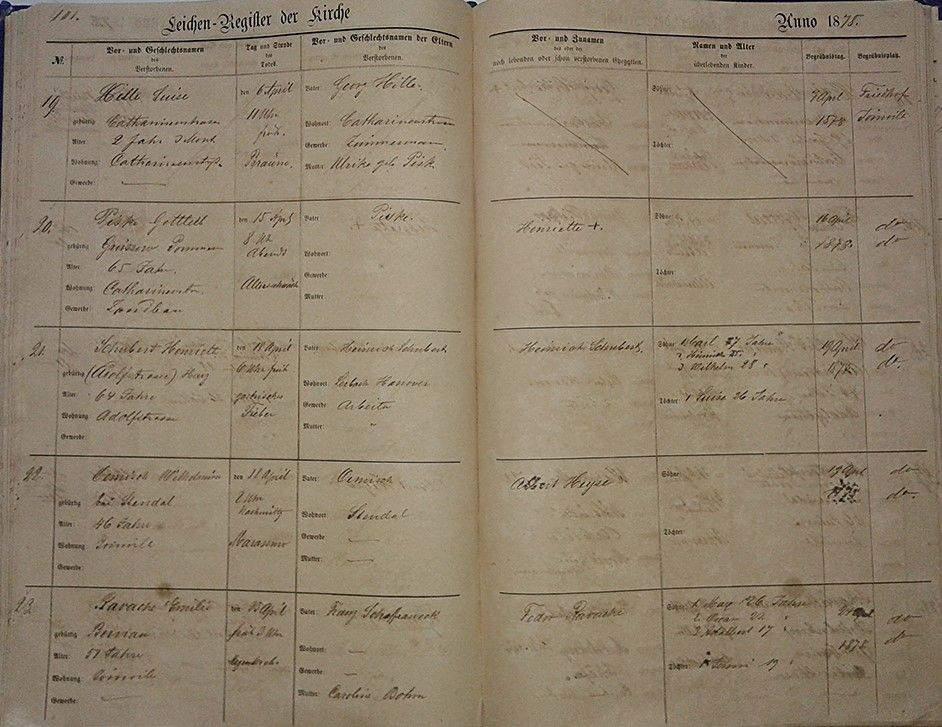 101.
Leichen-Register der Kirche
Anno 1878.
№.
Vor- und Geschlechtsnamen
des
Verstorbenen.
Tag und Stunde
des
Todes.
Vor- und Geschlechtsnamen der Eltern
des
Verstorbenen.
Vor- und Zunamen
des oder der
noch lebenden oder schon verstorbenen Ehegatten.
Namen und Alter
der
überlebenden Kinder.
Begräbnißtag.
Begräbnißplatz.
19.
Hille Luise
gebürtig
Catharinenstrasse
Alter:
2 Jahr 3 Mont.
Wohnung:
Catharinenstrasse
Gewerbe:
den 6 April
11 Uhr
früh.
Vater:
Georg Hille.
Wohnort:
Catharinenstrasse
Gewerbe:
Zimmermann.
Mutter:
Ulrike geb. Piske
Söhne:
Töchter:
7 April
1878
Friedhof
Joinville
20.
Piske Gottlieb
gebürtig
Pommern
Alter:
65 Jahr.
Wohnung:
Catharinenstr.
Gewerbe:
Landbau
den 15 April
8 Uhr
Abends
Altersschwäche
Vater
Piske.
Wohnort:
Gewerbe:
Mutter:
Henriette +.
Söhne:
Töchter:
16 April
1878.
do
do
21.
Schubert Henriette
gebürtig
(Adolfstrasse) Harz
Alter:
64 Jahre
Wohnung
Adolfstrasse
Gewerbe:
den 18 April
6 Uhr früh
gastrisches
Fieber
Vater:
Heinrich Schubert
Wohnort:
Lerbach Hanover
Gewerbe:
Arbeiter
Mutter:
"
Heinrich Schubert.
Söhne:
1 Carl 37 Jahre
2. Heinrich
3. Wilhelm 28 "
Töchter:
1 Luise 26 Jahre
19 April
1878.
do
do.
22.
Wilhelmine
gebürtig
bei Stendal
Alter:
46 Jahre
Wohnung
Joinville
Gewerbe:
den 18 April
2 Uhr
Nachmittg
Marasmus
Vater:
Wohnort:
Stendal
Gewerbe
Mutter:
Albert Heyse
Söhne:
Töchter:
19 April
1878
do
do
23.
Emilie
gebürtig
Alter:
51 Jahre
Wohnung:
Joinville
Gewerbe:
den
April
früh 3 Uhr
Vater:
Franz
Wohnort:
Gewerbe:
Mutter:
Caroline Bohm
Söhne:
1. Max 26 Jahre
2. Oscar
3. Adalbert 17 "
Töchter:
19 "
April
1878
do
do